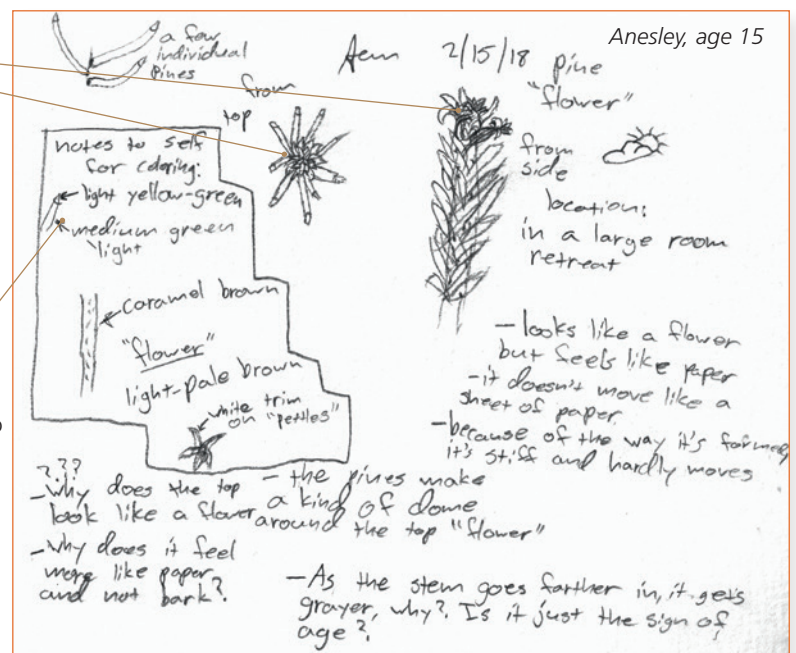 Anesley, age 15
a few
individual
pines
2/15/18 pine
"flower"
from
top
from
side
notes to self
for coloring:
light yellow-green
medium green
light
caramel brown
"flower"
light-pale brown
white trim
on "pettles"
location:
in a large room
retreat
- looks like a flower
but feels like paper
- it doesn't move like a
sheet of paper.
- because of the way it's formed,
it's stiff and hardly moves
???
- why does the top
look like a flower
- why does it feel
more like paper
and not bark?
- the pines make
a kind of dome
around the top "flower"
- As the stem goes farther in, it gets
grayer, why? Is it just the sign of
age?